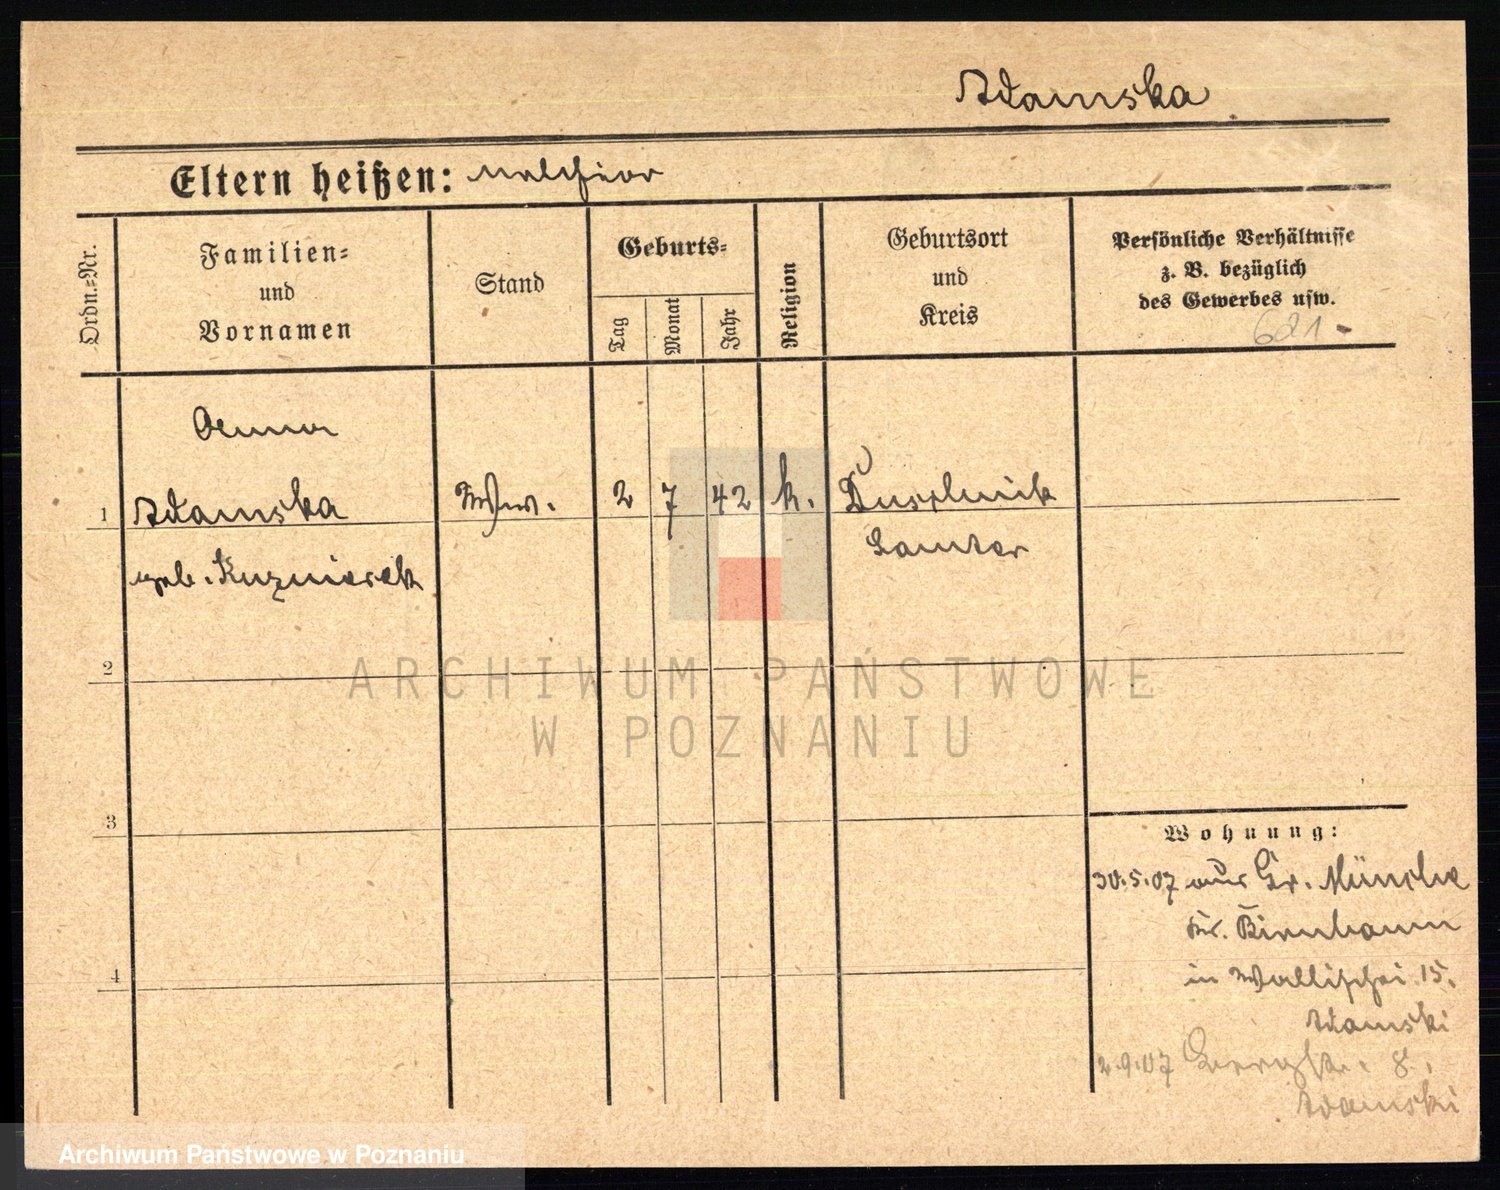 Adamska
Eltern heißen: Melchior
Ordn.-Nr.
Familien-
und
Vornamen
Stand
Geburts-
Tag
Monat
Jahr
Religion
Geburtsort
und
Kreis
Persönliche Verhältnisse
z. B. bezüglich
des Gewerbes usw.
621
1
Adamska
geb. Kuzmierek
Ww.
2
7
42
k.
Duschnik
Samter
2
3
4
ARCHIWUM PAŃSTWOWE
W POZNANIU
Wohnung:
30.5.07 aus Gr. Münche
Kr. Birnbaum
in Wallischei 15.
Adamski
2.9.07 8.
Adamski
Archiwum Państwowe w Poznaniu